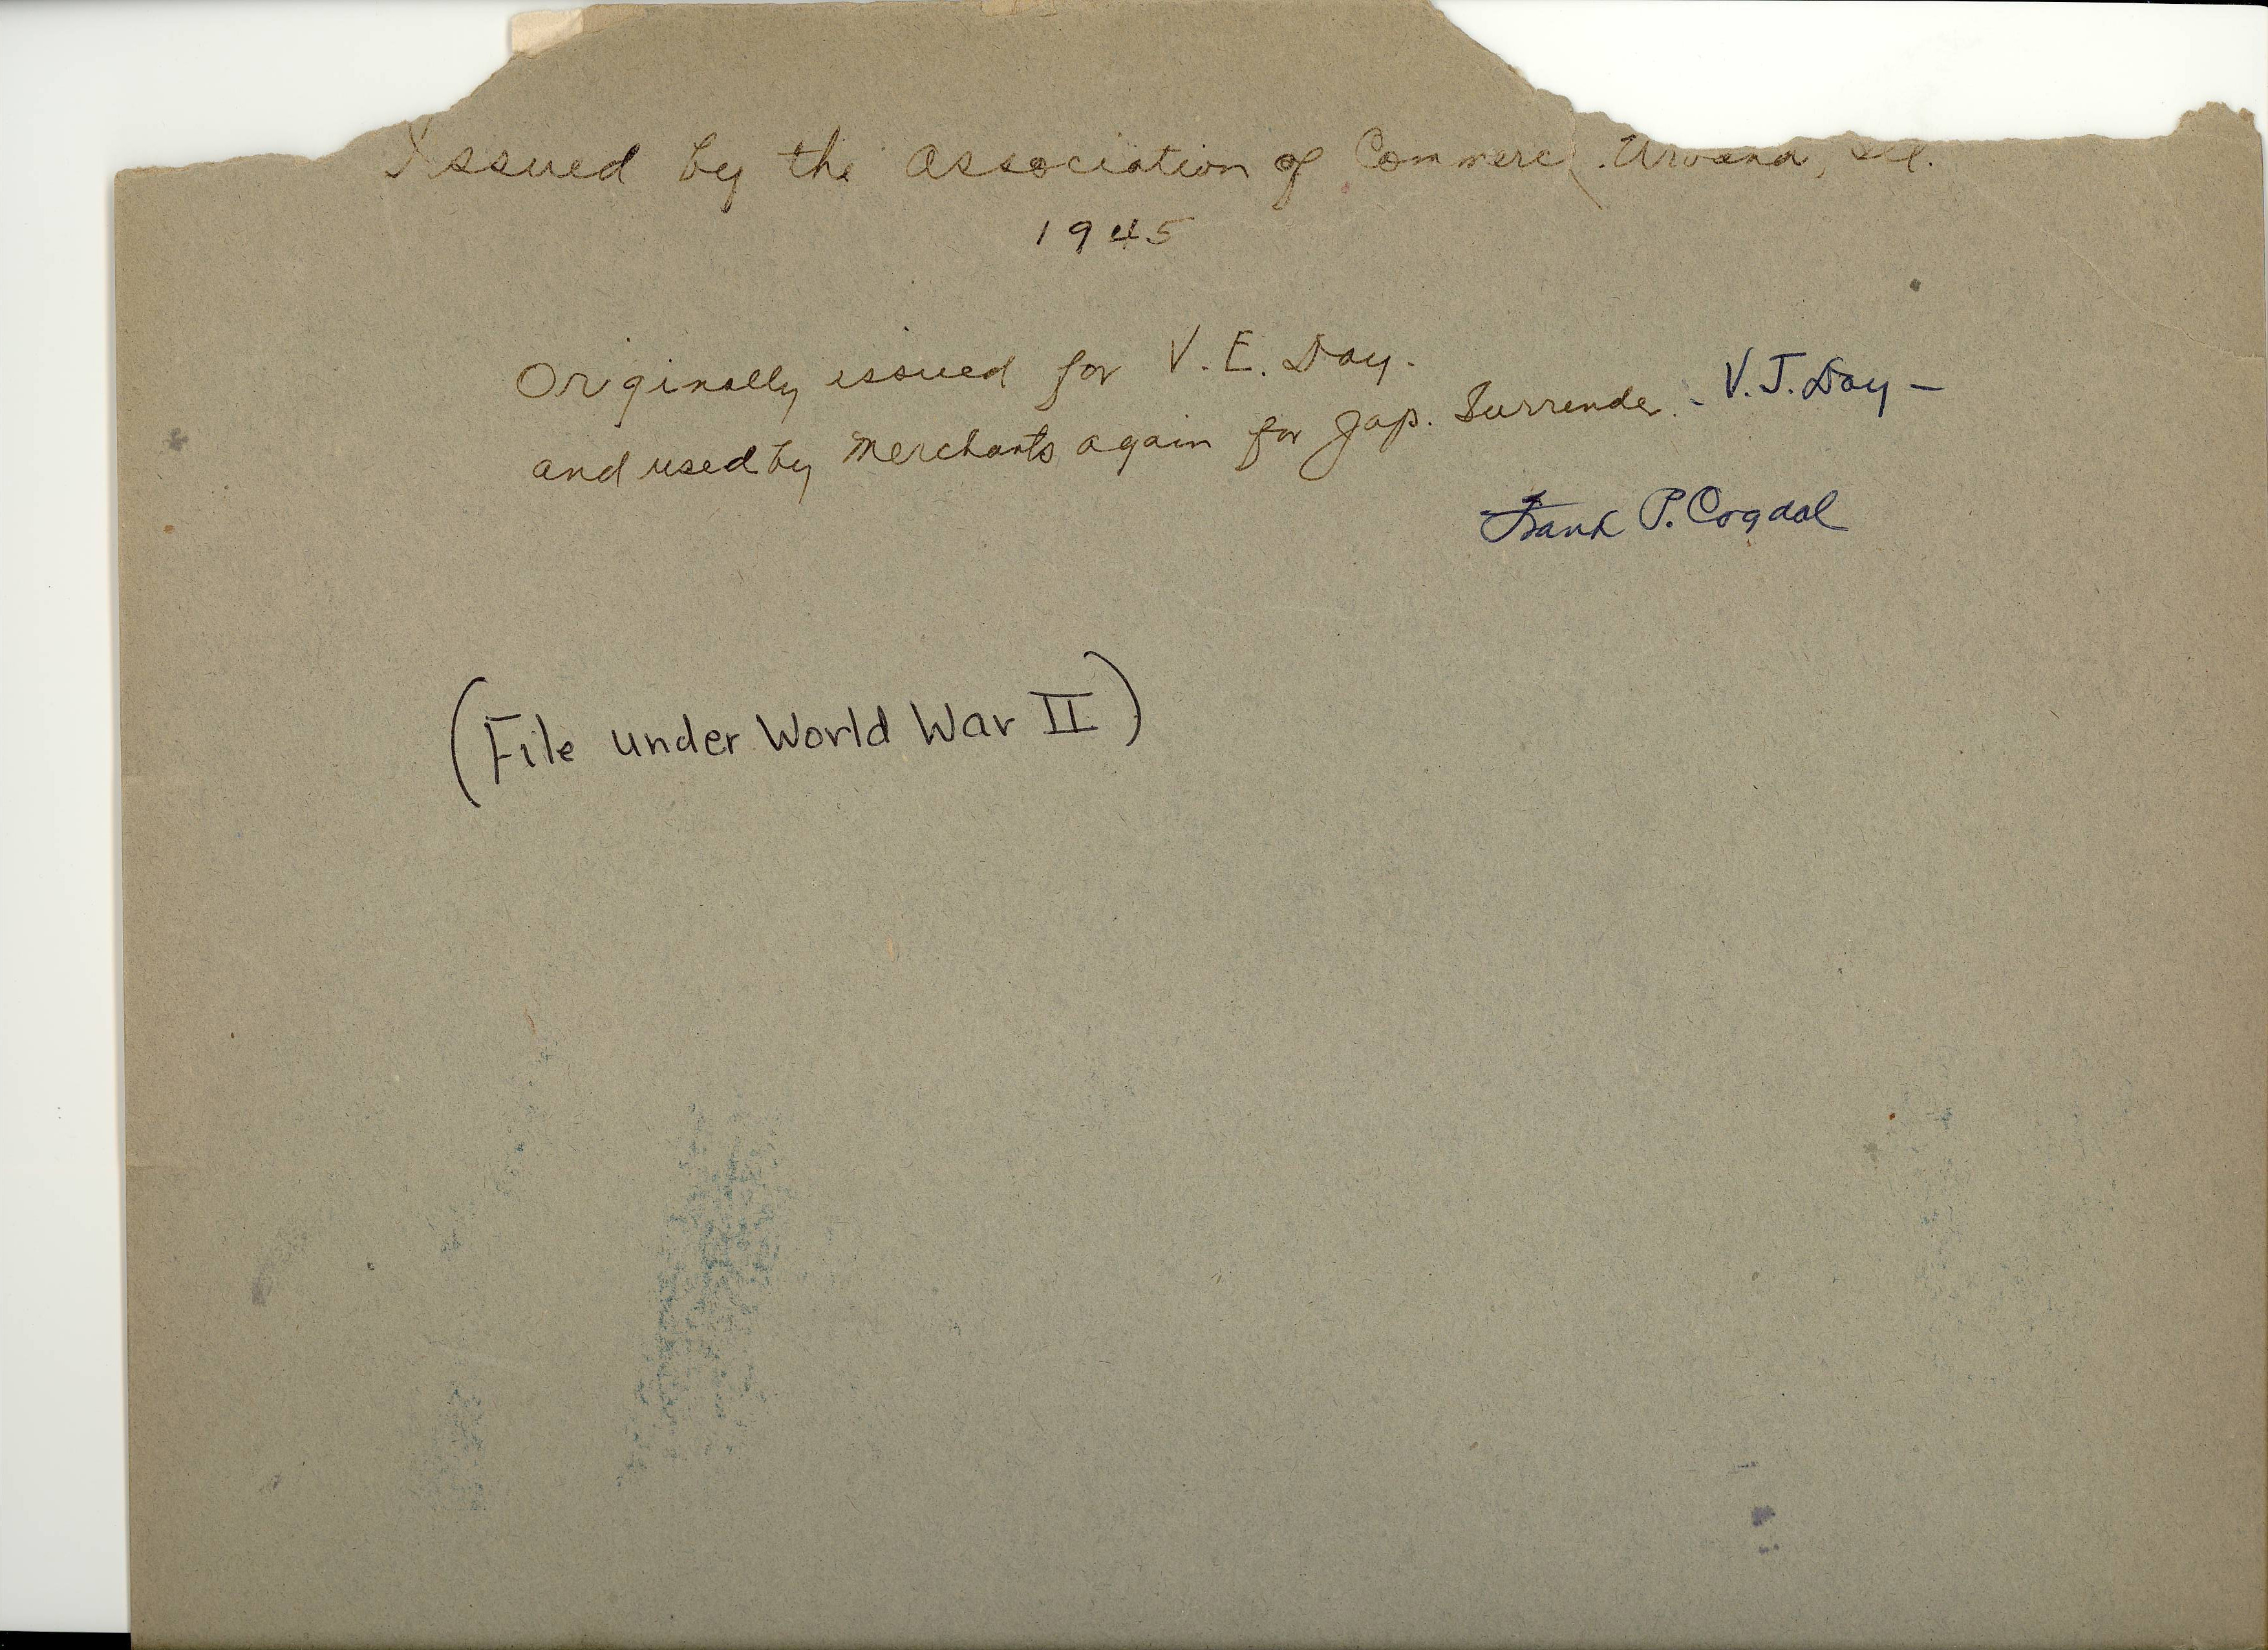 Issued by the Association of Commerc. Urbana, Ill.
1945
Originally issued for V. E. Day.
and used by merchants again for Jap. Surrender. - V. J. Day -
Frank P. Cogdal
(File under World War II)